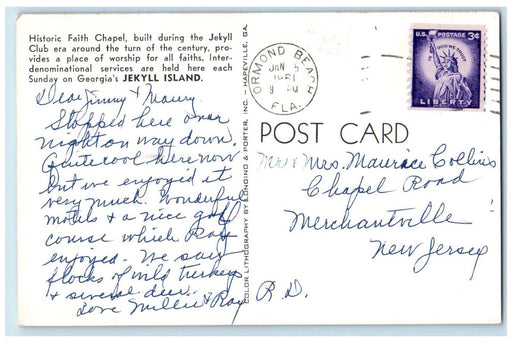 Historic Faith Chapel, built during the Jekyll
Club era around the turn of the century, pro-
vides a place of worship for all faiths. Inter-
denominational services are held here each
Sunday on Georgia's JEKYLL ISLAND.
Dear Jimmy & Maury
Stopped here over
night on way down.
Quite cool here now
but we enjoyed it
very much. Wonderful
motels & a nice golf
course which Ray
enjoyed. We saw
flocks of wild turkeys
& several deer.
Love Millie & Ray
COLOR LITHOGRAPHY BY LONGINO & PORTER, INC. - HAPEVILLE, GA.
ORMOND BEACH
JAN 5
1961
9 PM
FLA.
U.S. POSTAGE 3¢
IN GOD WE TRUST
LIBERTY
POST CARD
Mr & Mrs. Maurice Collins
Chapel Road
Merchantville
New Jersey
R.D.